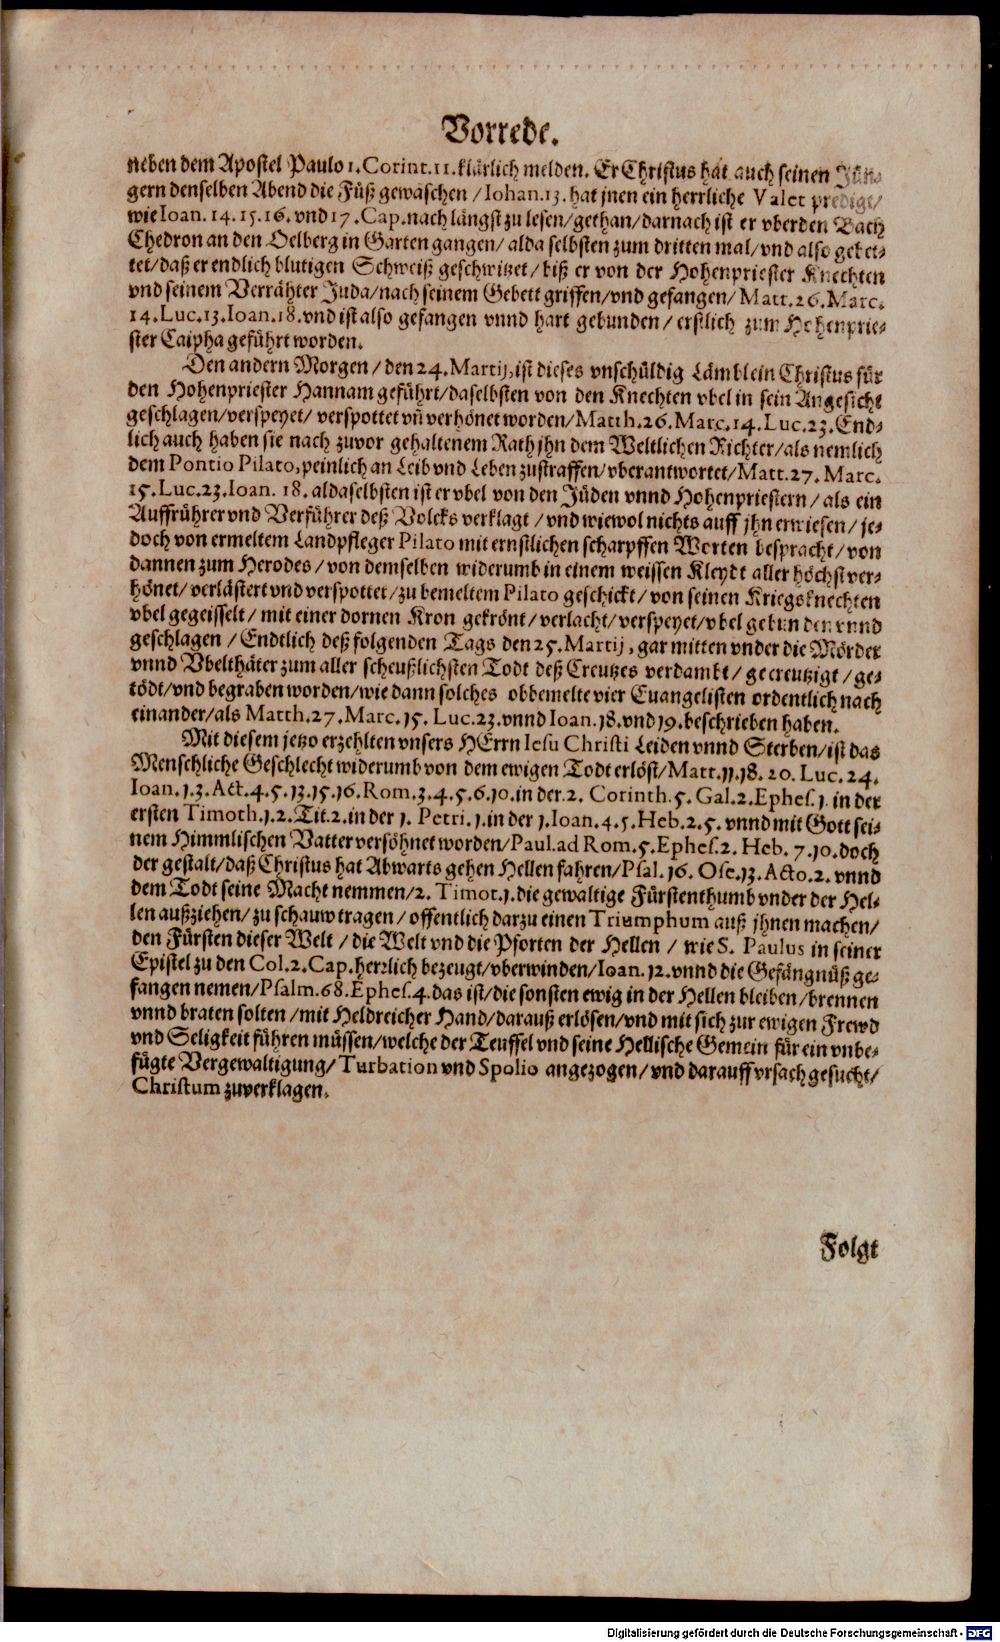 Vorrede.
neben dem Apostel Paulo 1. Corint. 11. klärlich melden. Er Christus hat auch seinen Jün-
gern denselben Abend die Füß gewaschen / Iohan. 13. hat jnen ein herrliche Valet predigt/
wie Ioan. 14. 15. 16. vnd 17. Cap. nach längst zu lesen/ gethan/ darnach ist er vber den Bach
Chedron an den Oelberg in Garten gangen/ alda selbsten zum dritten mal/ vnd also gebet-
tet/ daß er endlich blutigen Schweiß geschwitzet/ biß er von der Hohenpriester Knechten
vnd seinem Verrähter Juda/ nach seinem Gebett griffen/ vnd gefangen/ Matt. 26. Marc.
14. Luc. 13. Ioan. 18. vnd ist also gefangen vnnd hart gebunden/ erstlich zum Hohenprie-
ster Caipha geführt worden.
Den andern Morgen / den 24. Martij, ist dieses vnschüldig Lämblein Christus für
den Hohenpriester Hannam geführt/ daselbsten von den Knechten vbel in sein Angesicht
geschlagen/ verspeyet/ verspottet vñ verhönet worden/ Matth. 26. Marc. 14. Luc. 23. End-
lich auch haben sie nach zuvor gehaltenem Rath jhn dem Weltlichen Richter/ als nemlich
dem Pontio Pilato, peinlich an Leib vnd Leben zustraffen/ vberantwortet/ Matt. 27. Marc.
15. Luc. 23. Ioan. 18. aldaselbsten ist er vbel von den Jüden vnnd Hohenpriestern/ als ein
Auffrührer vnd Verführer deß Volcks verklagt / vnd wiewol nichts auff jhn erwiesen/ je-
doch von ermeltem Landpfleger Pilato mit ernstlichen scharpffen Worten bespracht/ von
dannen zum Herodes / von demselben widerumb in einem weissen Kleydt aller höchst ver-
hönet/ verlästert vnd verspottet/ zu bemeltem Pilato geschickt/ von seinen Kriegsknechten
vbel gegeisselt/ mit einer dornen Kron gekrönt/ verlacht/ verspeyet/ vbel gebunden vnnd
geschlagen / Endtlich deß folgenden Tags den 25. Martij, gar mitten vnder die Mörder
vnnd Vbelthäter zum aller scheußlichsten Todt deß Creutzes verdambt/ gecreutzigt/ ge-
tödt/ vnd begraben worden/ wie dann solches obbemelte vier Euangelisten ordentlich nach
einander/ als Matth. 27. Marc. 15. Luc. 23. vnnd Ioan. 18. vnd 19. beschrieben haben.
Mit diesem jetzo erzehlten vnsers HErrn Iesu Christi Leiden vnnd Sterben/ ist das
Menschliche Geschlecht widerumb von dem ewigen Todt erlöst/ Matt. 11. 18. 20. Luc. 24.
Ioan. 1. 3. Act. 4. 5. 13. 15. 16. Rom. 3. 4. 5. 6. 10. in der 2. Corinth. 5. Gal. 2. Ephes. 1. in der
ersten Timoth. 1. 2. Tit. 2. in der 1. Petri. 1. in der 1. Ioan. 4. 5. Heb. 2. 5. vnnd mit Gott sei-
nem Himmlischen Vatter versöhnet worden/ Paul. ad Rom. 5. Ephes. 2. Heb. 7. 10. doch
der gestalt/ daß Christus hat Abwarts gehen Hellen fahren/ Psal. 16. Ose. 13. Acto. 2. vnnd
dem Todt seine Macht nemmen/ 2. Timot. 1. die gewaltige Fürstenthumb vnder der Hel-
len außziehen/ zu schauw tragen/ offentlich darzu einen Triumphum auß jhnen machen/
den Fürsten dieser Welt / die Welt vnd die Pforten der Hellen / wie S. Paulus in seiner
Epistel zu den Col. 2. Cap. herrlich bezeugt/ vberwinden/ Ioan. 12. vnnd die Gefängnüß ge-
fangen nemen/ Psalm. 68. Ephes. 4. das ist/ die sonsten ewig in der Hellen bleiben/ brennen
vnnd braten solten / mit Heldreicher Hand/ darauß erlösen/ vnd mit sich zur ewigen Frewd
vnd Seligkeit führen müssen/ welche der Teuffel vnd seine Hellische Gemein für ein vnbe-
fügte Vergewaltigung/ Turbation vnd Spolio angezogen/ vnd darauff vrsach gesucht/
Christum zuverklagen.
Folgt
Digitalisierung gefördert durch die Deutsche Forschungsgemeinschaft - DFG